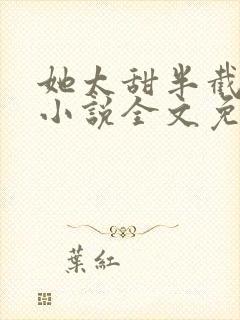 她太甜半截
小說全文免
葉紅